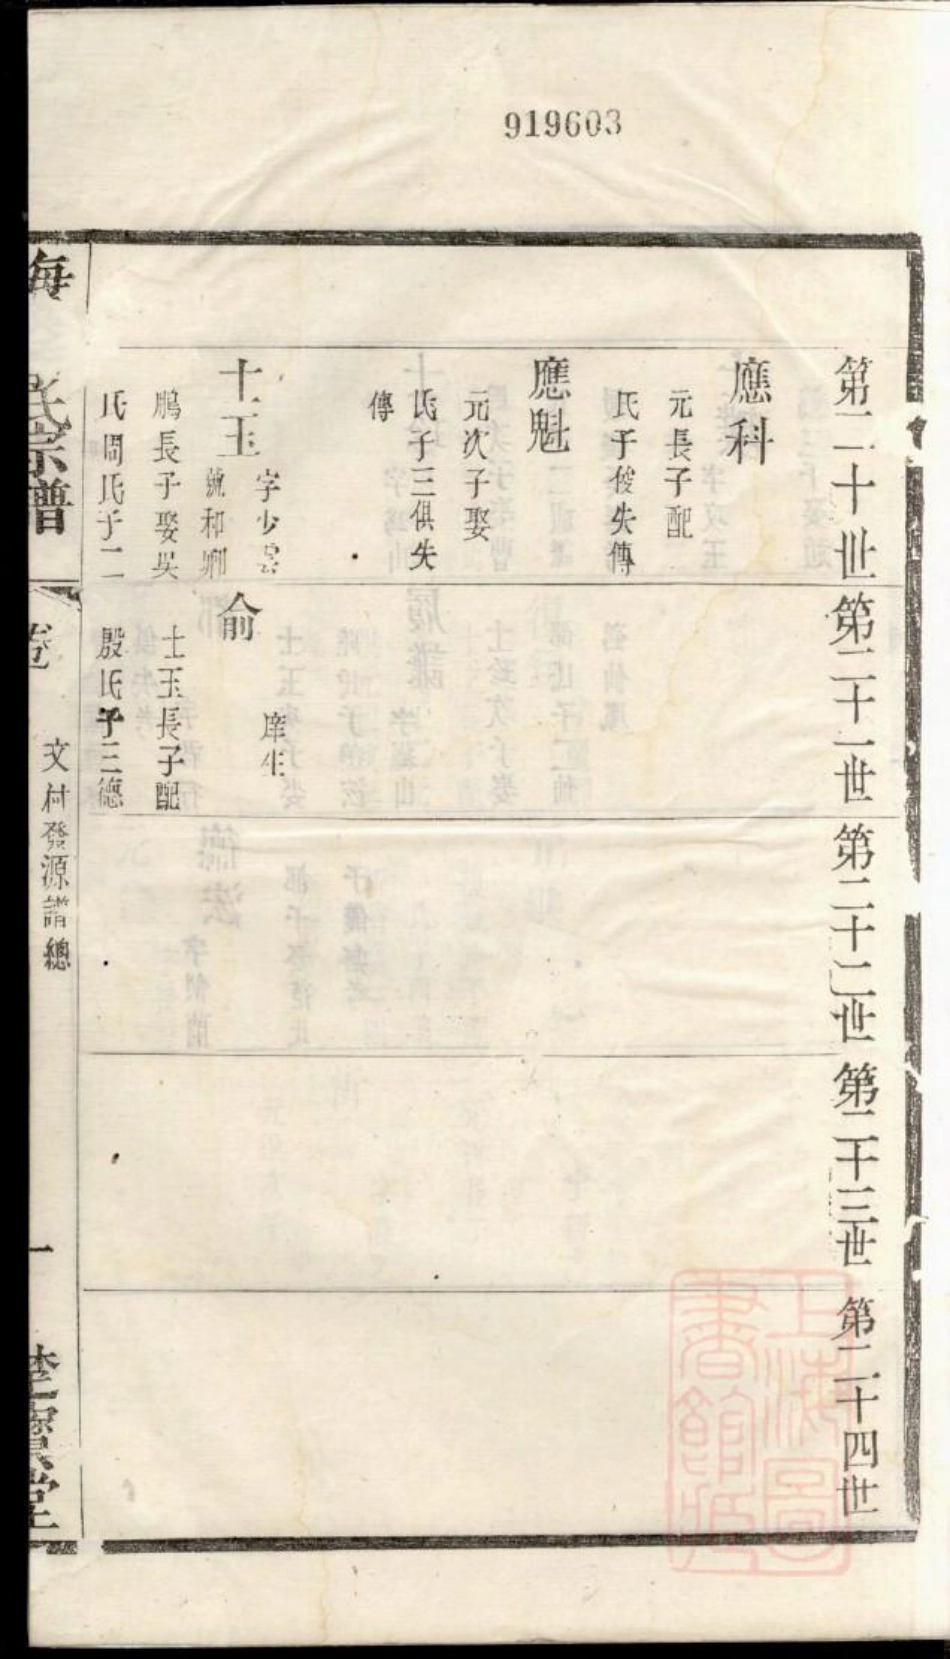 919603
第二十世
第二十一世
第二十二世
第二十三世
第二十四世
應科
元長子配
氏子俊失傳
應魁
元次子娶
氏子三俱失
傳
士玉
字少雲
號和卿
鵬長子娶吳
氏周氏子二
俞
庠生
士玉長子配
殷氏子三德
海
氏宗譜
卷
文村發源譜總
一
堂
上海圖
書館藏